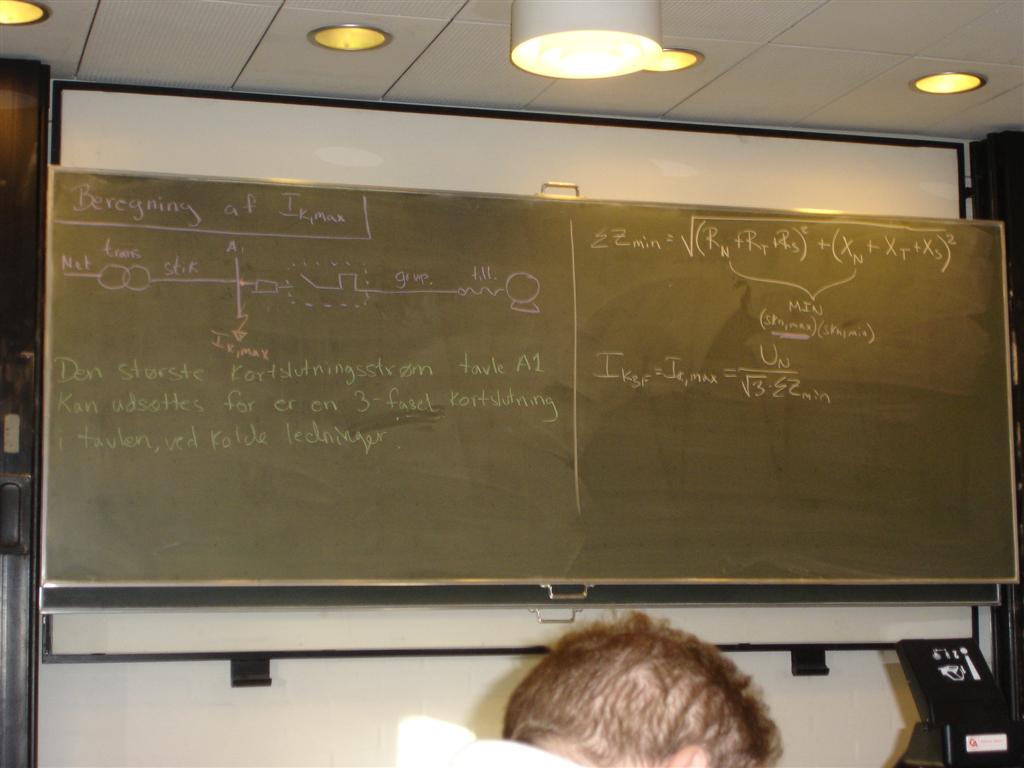 Beregning af I_K,max
Net trans stik A1 grup. till.
I_K,max
Den største Kortslutningsstrøm tavle A1
Kan udsættes for er en 3-faset kortslutning
i tavlen, ved kolde ledninger.
ΣZ_min = √((R_N+R_T+R_S)² + (X_N+X_T+X_S)²)
MIN
(Skn,max)(Skn,min)
I_K3F = I_K,max = U_N / (√3·ΣZ_min)